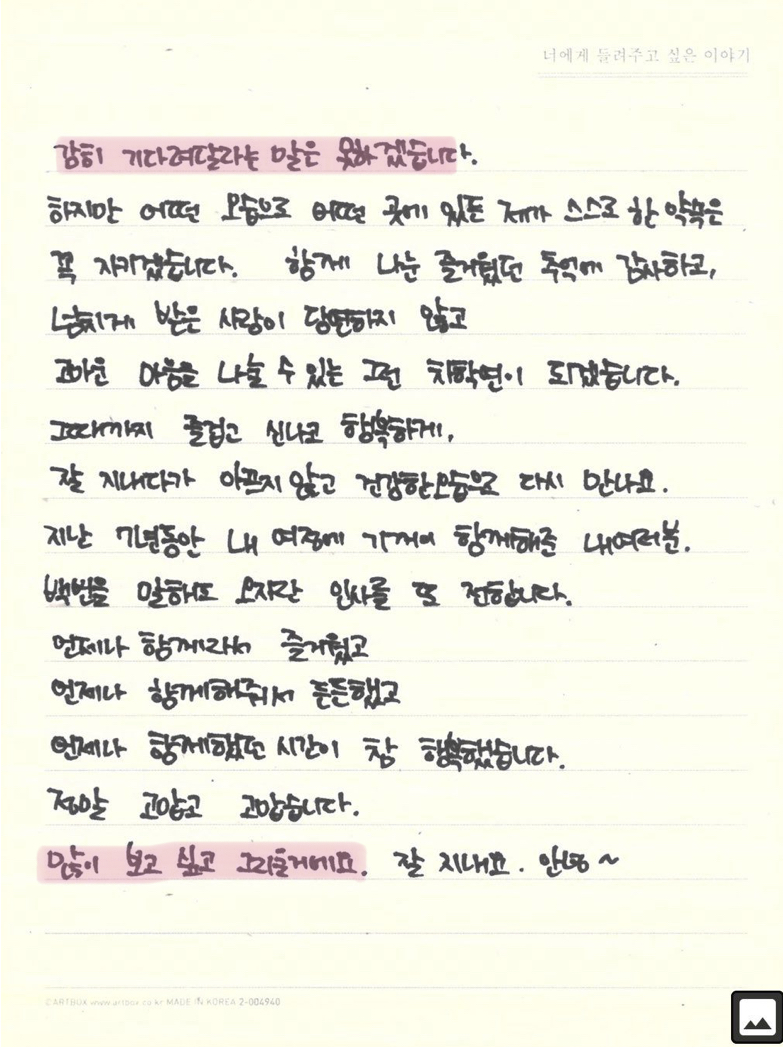 너에게 들려주고 싶은 이야기
감히 기다려달라는 말은 못하겠습니다.
하지만 어떤 모습으로 어떤 곳에 있든 제가 스스로 한 약속은
꼭 지키겠습니다. 함께 나눈 즐거웠던 추억에 감사하고,
넘치게 받은 사랑이 당연하지 않고
고마운 마음을 나눌 수 있는 그런 차학연이 되겠습니다.
그때까지 즐겁고 신나고 행복하게,
잘 지내다가 아프지 않고 건강한모습으로 다시 만나요.
지난 7년동안 내 여정에 기꺼이 함께해준 내여러분.
백번을 말해도 모자란 인사를 또 전합니다.
언제나 함께라서 즐거웠고
언제나 함께해줘서 든든했고
언제나 함께했던 시간이 참 행복했습니다.
정말 고맙고 고맙습니다.
많이 보고 싶고 그리울거에요. 잘 지내요. 안녕~
©ARTBOX www.artbox.co.kr MADE IN KOREA 2-004940